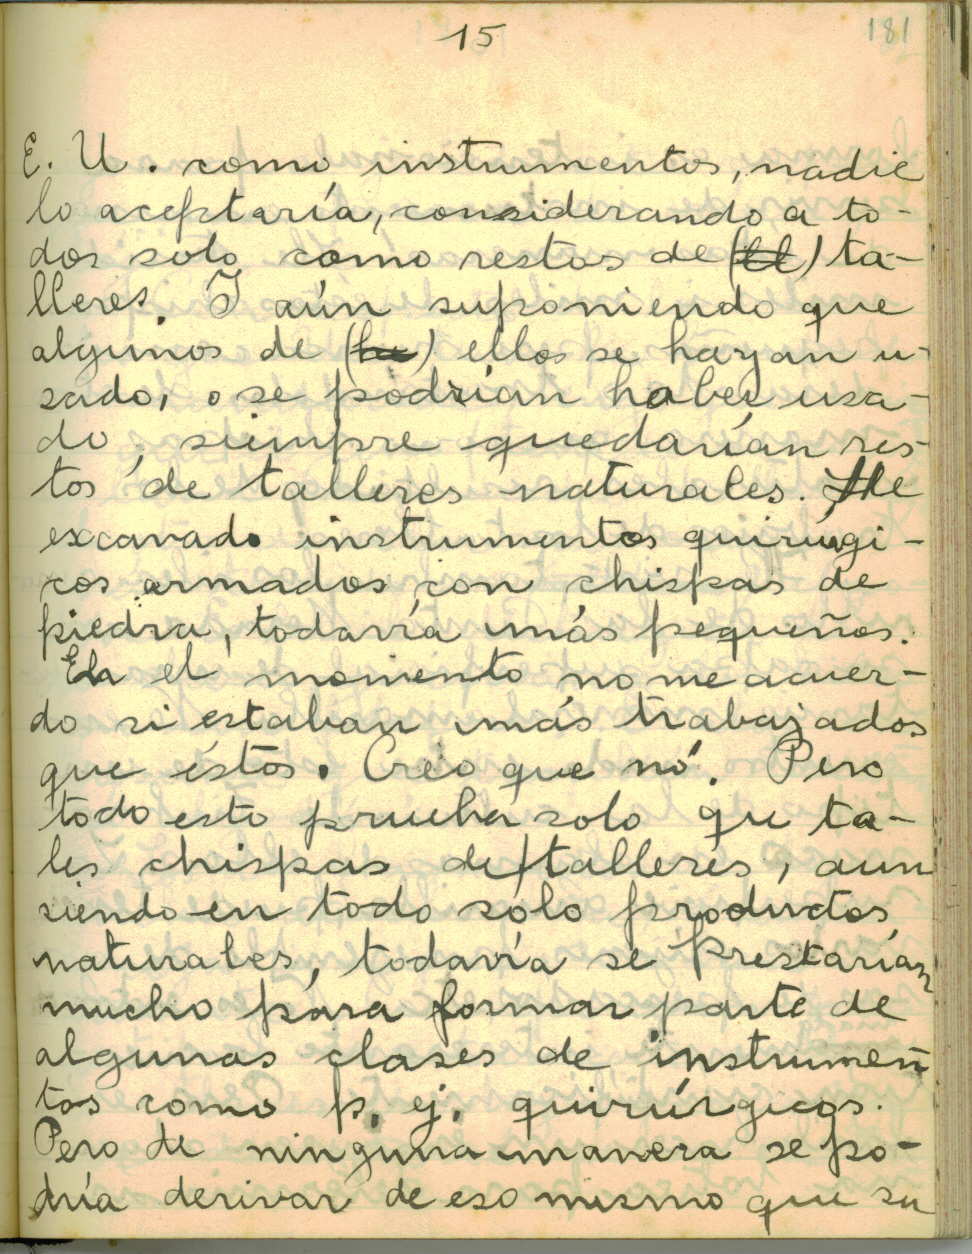 15
181
E. U. como instrumentos, nadie
lo aceptaría, considerando a to-
dos solo como restos de (el) ta-
lleres. I aún suponiendo que
algunos de ellos se hayan u-
sado, o se podrían haber usa-
do, siempre quedarían res-
tos de talleres naturales. He
excavado instrumentos quirúrgi-
cos armados con chispas de
piedra, todavía más pequeños.
En el momento no me acuer-
do si estaban más trabajados
que éstos. Creo que nó. Pero
todo esto prueba solo qu ta-
les chispas de/talleres, aun
siendo en todo sólo productos
naturales, todavía se prestarían
mucho para formar parte de
algunas clases de instrumen-
tos como p. ej. quirúrgicos.
Pero de ninguna manera se po-
dría derivar de eso mismo que su